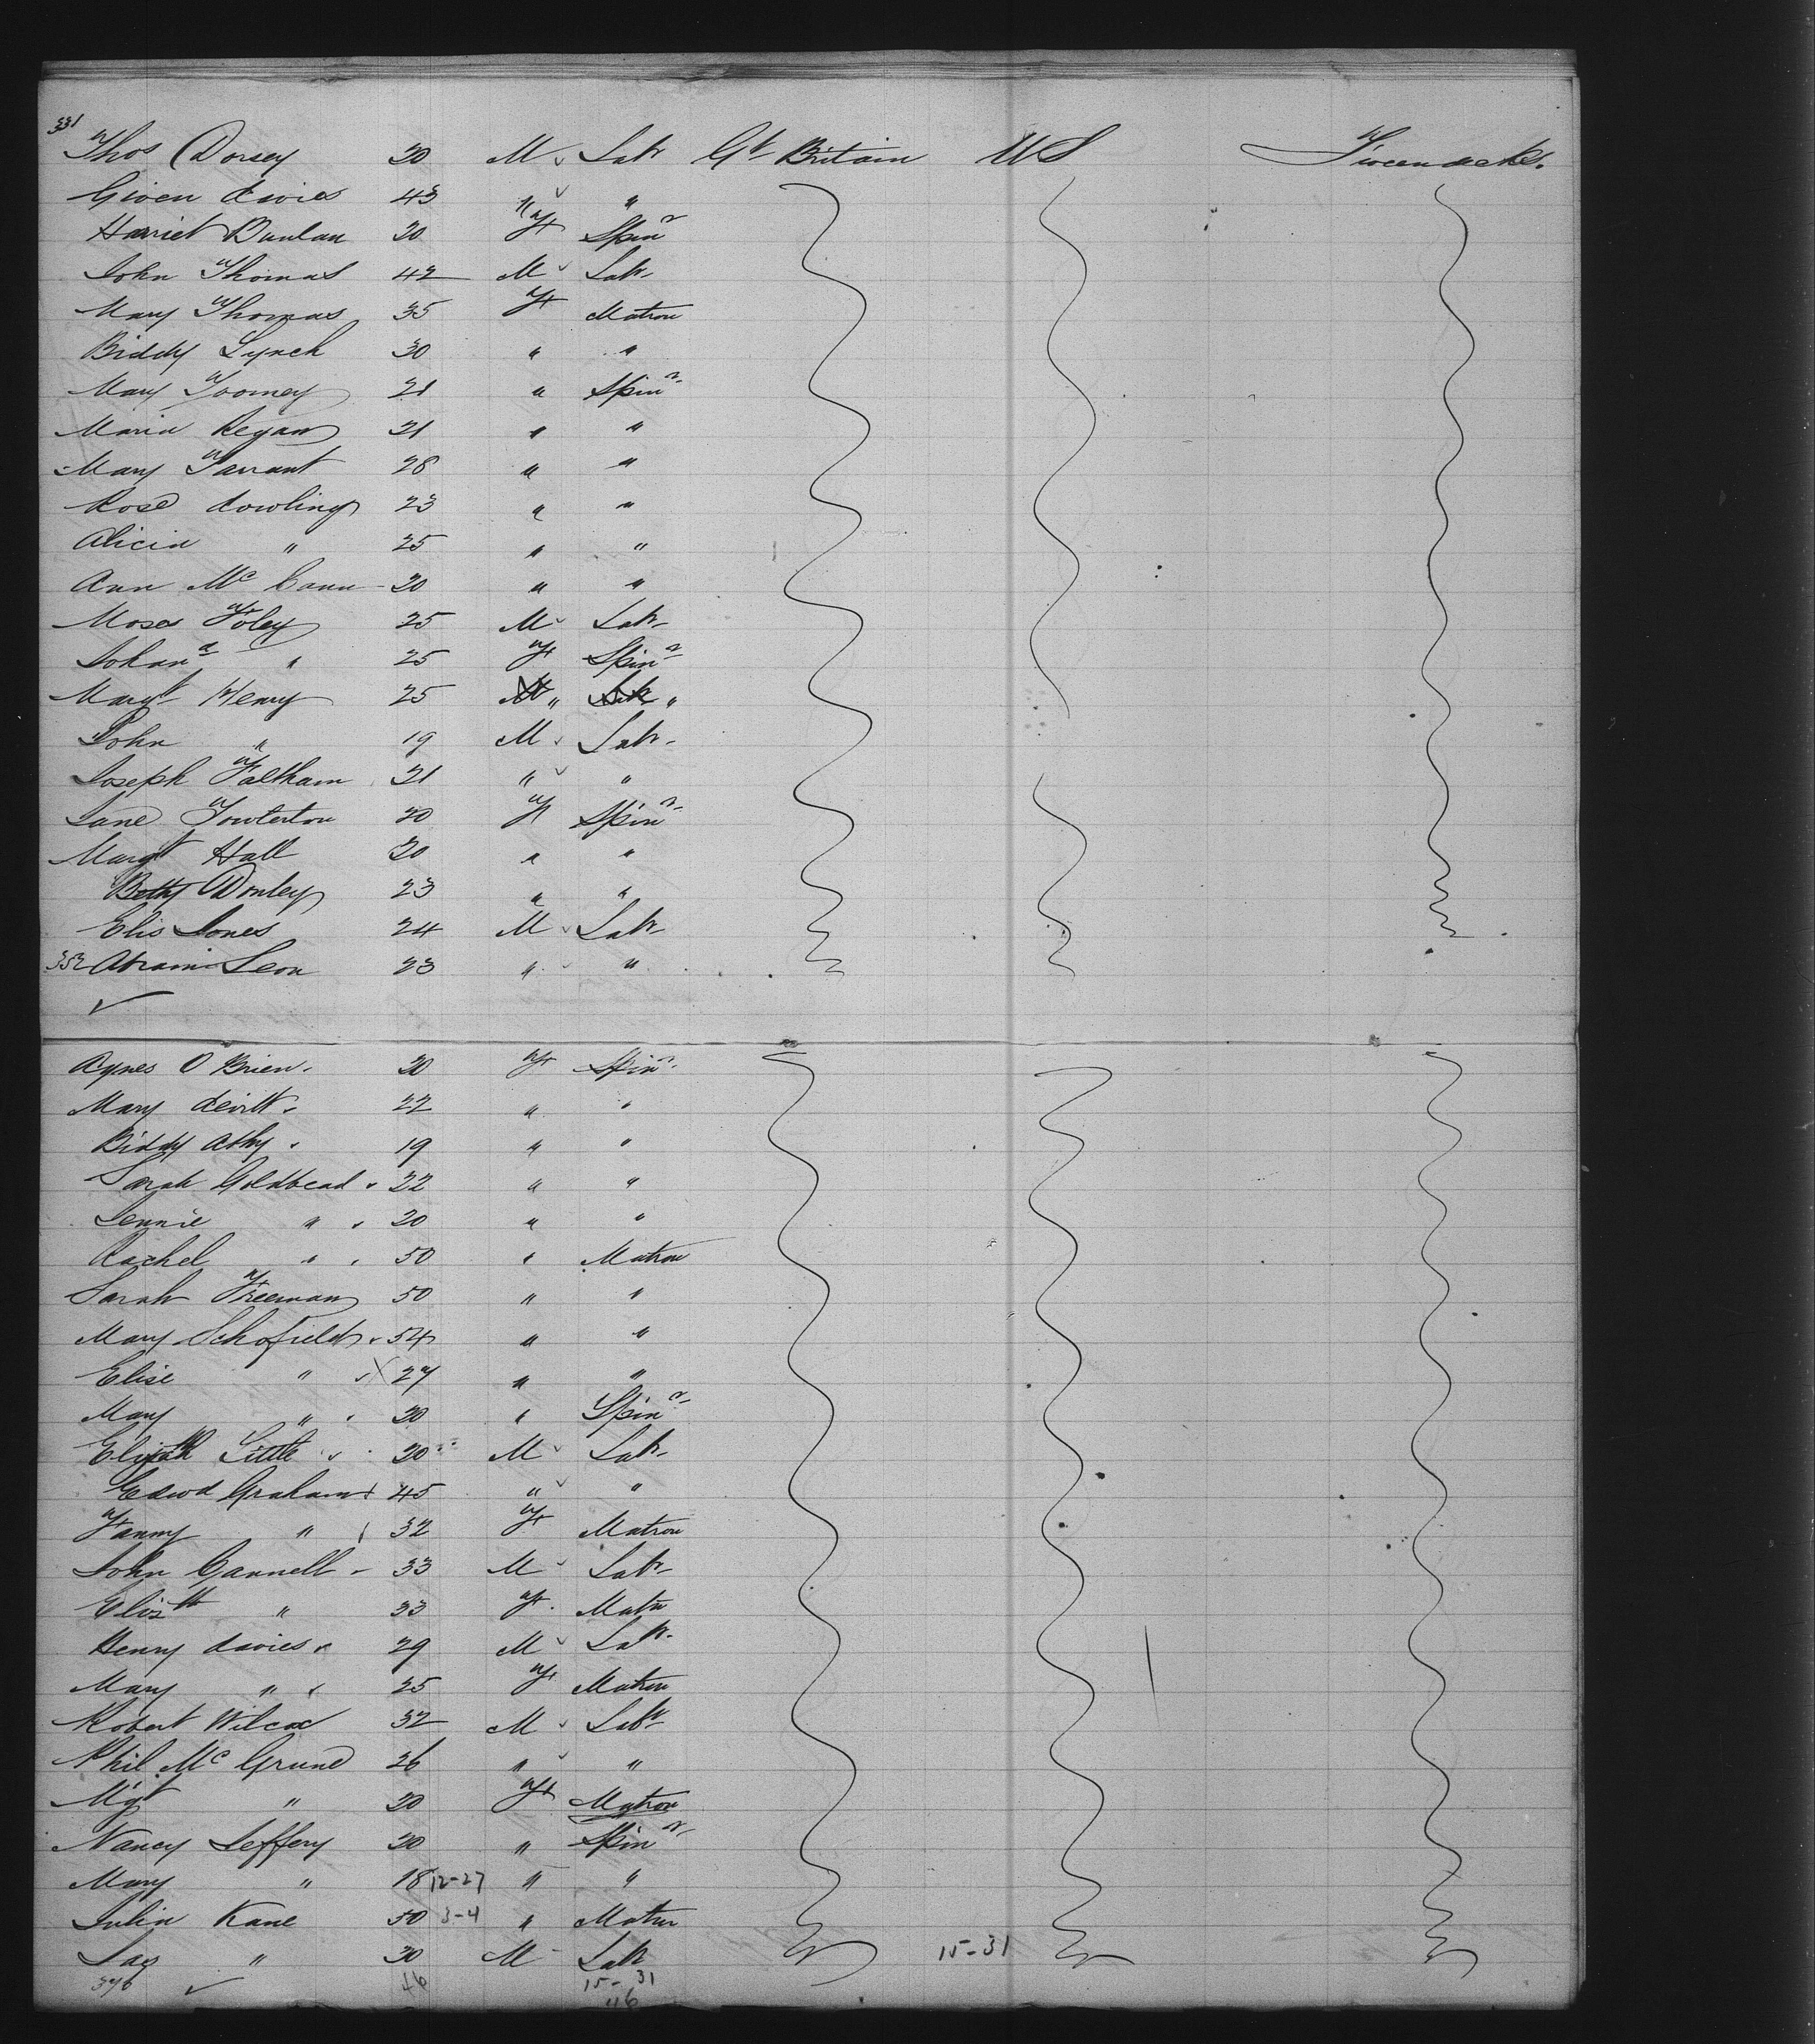 331
Thos Dorsey 20 M Labr Gt Britain US Tweendecks.
Given Davies 43 " "
Harriet Dunlan 20 F Spinr
John Thomas 42 M Labr
Mary Thomas 35 F Matron
Biddy Lynch 30 " "
Mary Toomey 21 " Spinr
Maria Regan 21 " "
Mary Tarrant 28 " "
Rose Dowling 23 " "
Alicia " 25 " "
Ann Mc Cann 20 " "
Moses Foley 25 M Labr
Johana " 25 F Spinr
Margt Henry 25 " "
John " 19 M Labr
Joseph Faltham 21 " "
Jane Fowlerton 20 F Spinr
Margt Hall 20 " "
Betty Donley 23 " "
Elis Jones 24 M Labr
352 Abram Leon 23 " "
Agnes O Brien 20 F Spinr
Mary Devitt 22 " "
Biddy Athy 19 " "
Sarah Goldbead 22 " "
Jennie " 20 " "
Rachel " 50 " Matron
Sarah Freeman 50 " "
Mary Schofield 54 " "
Elise " 27 " "
Mary " 20 " Spinr
Elijah Little 20 M Labr
Edwd Graham 45 " "
Fanny " 32 F Matron
John Cannell 33 M Labr
Elizth " 33 F Matn
Henry Davies 29 M Labr
Mary " 25 F Matron
Robert Wilcox 32 M Labr
Phil Mc Grund 26 " "
Mgt " 20 F Matron
Nancy Jeffery 20 " Spinr
Mary " 18 12-27 " "
Julia Kane 50 3-4 " Matrn
Jas " 30 M Labr 15-31
376 46 15-31
46